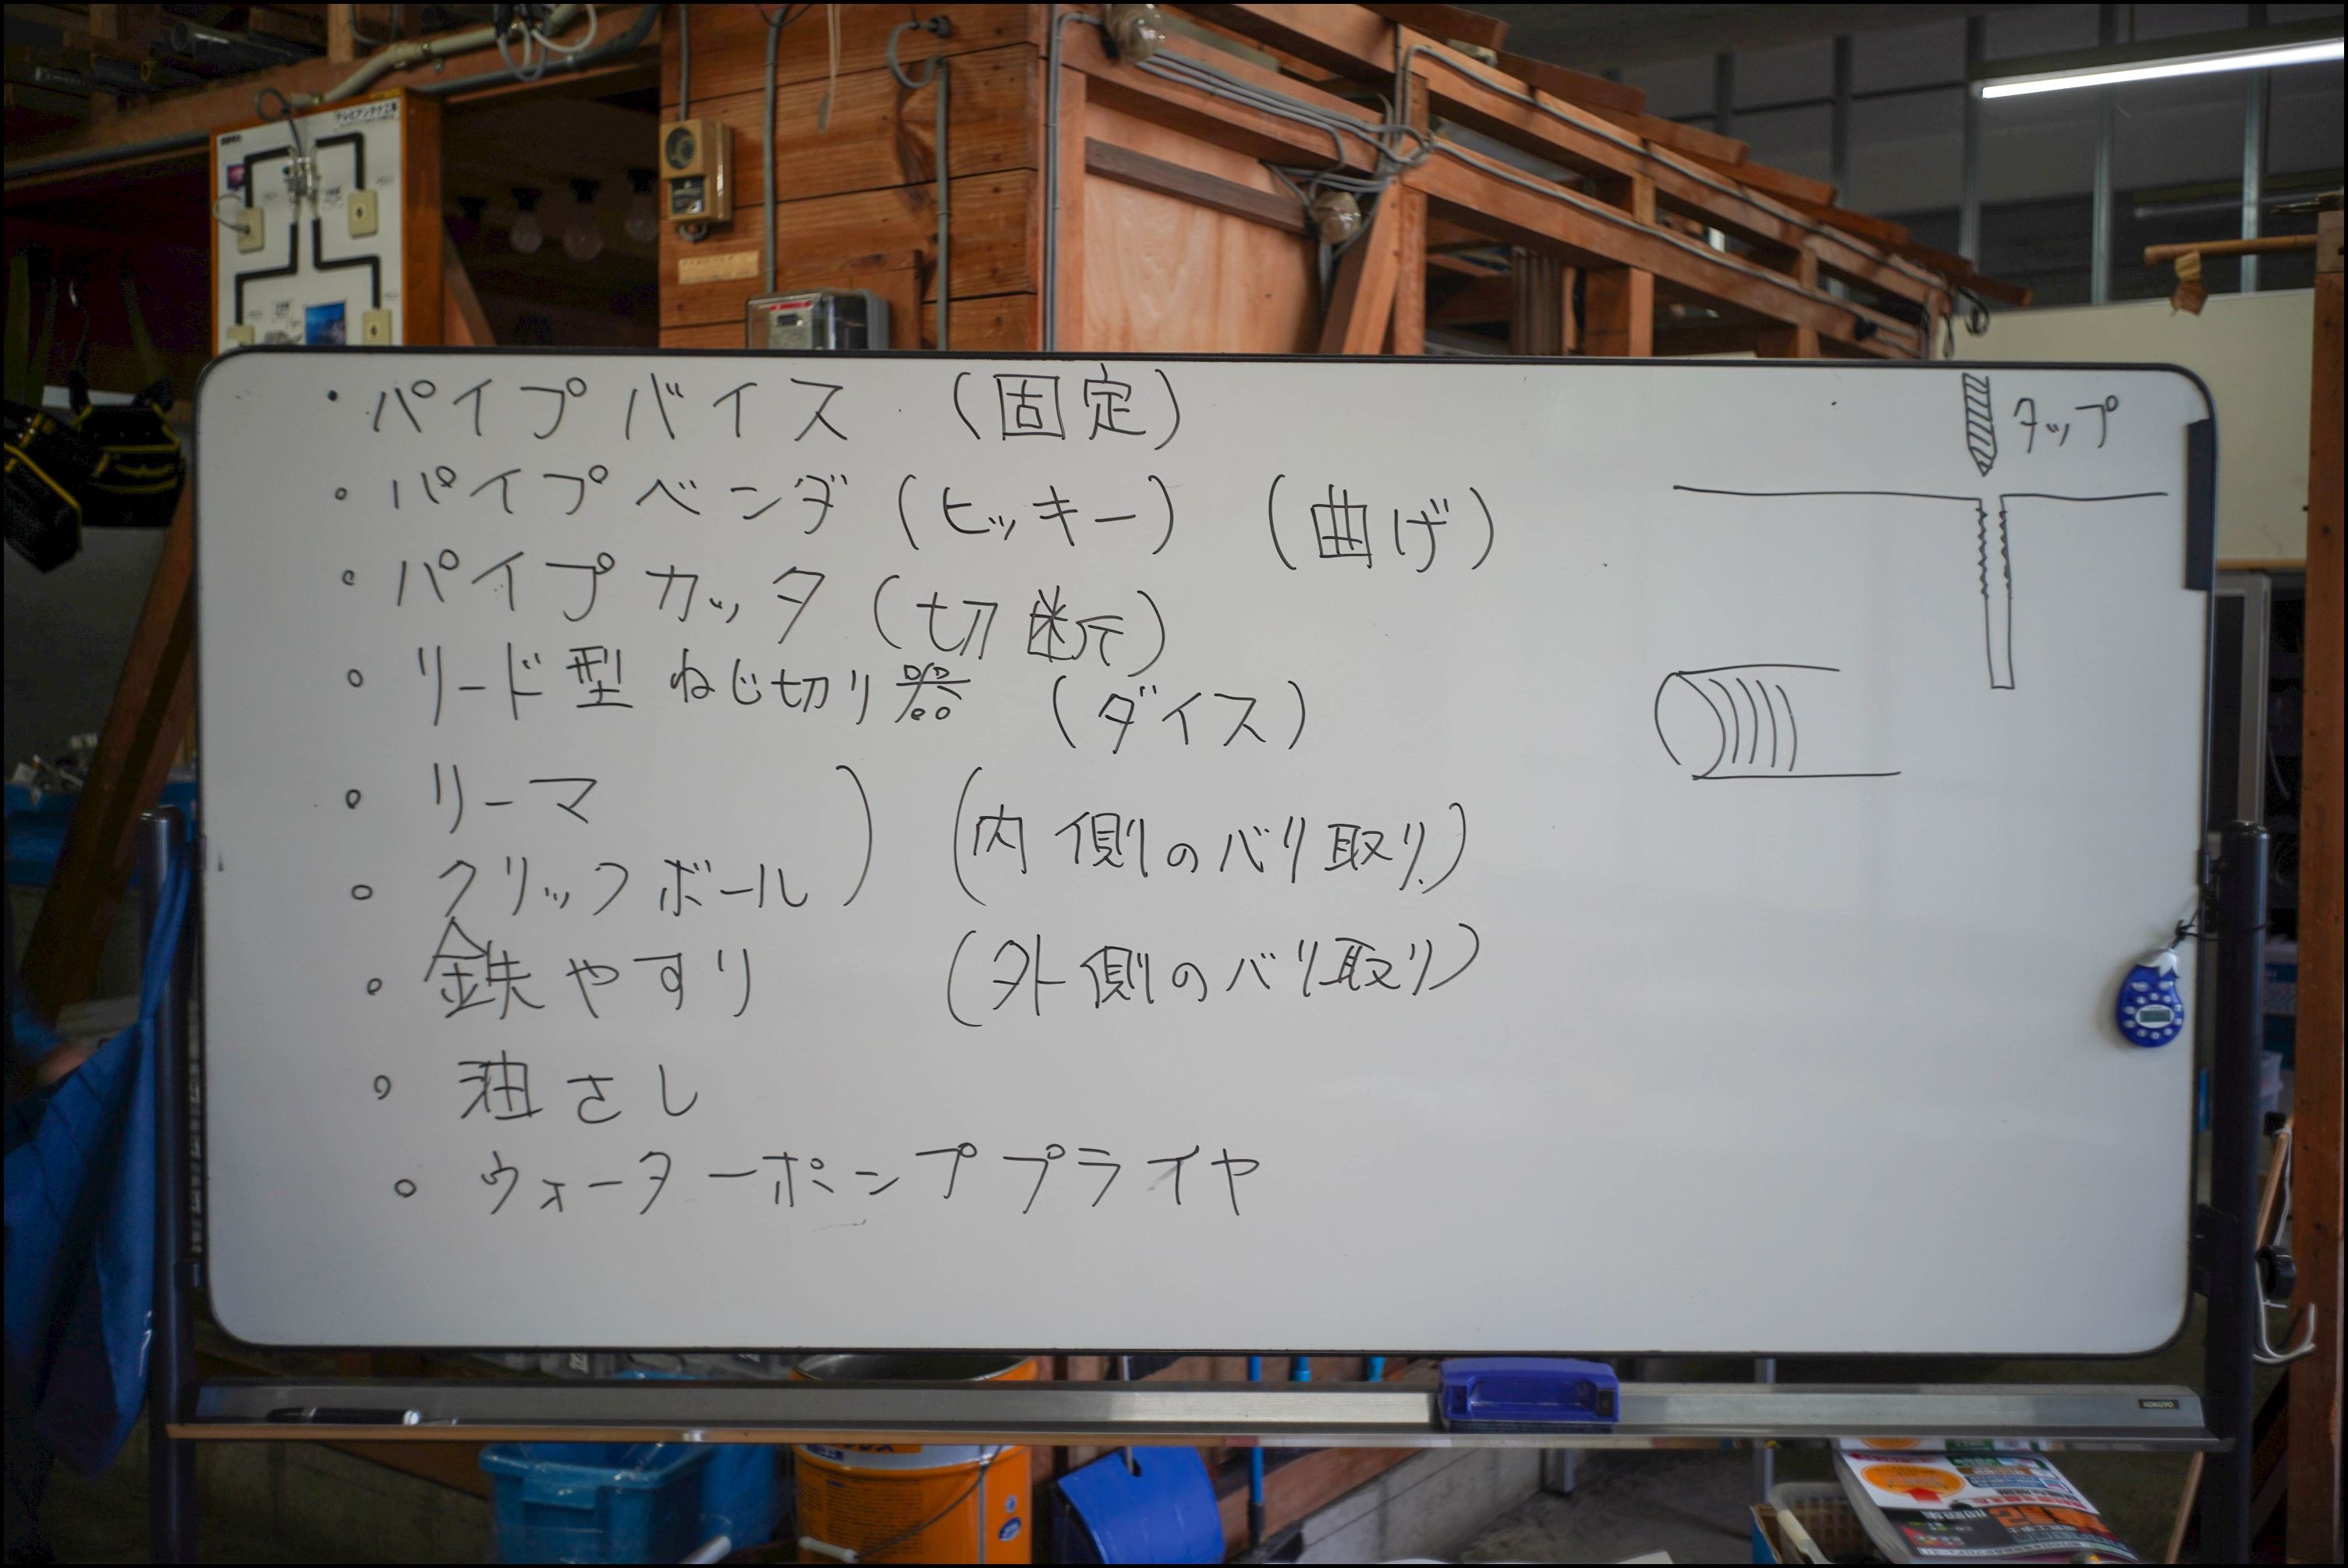 テレビアンテナ工事
・パイプバイス (固定)
・パイプベンダ (ヒッキー) (曲げ)
・パイプカッタ (切断)
・リード型ねじ切り器 (ダイス)
・リーマ
・クリックボール) (内側のバリ取り)
・鉄やすり (外側のバリ取り)
・油さし
・ウォーターポンププライヤ
タップ
KOKUYO